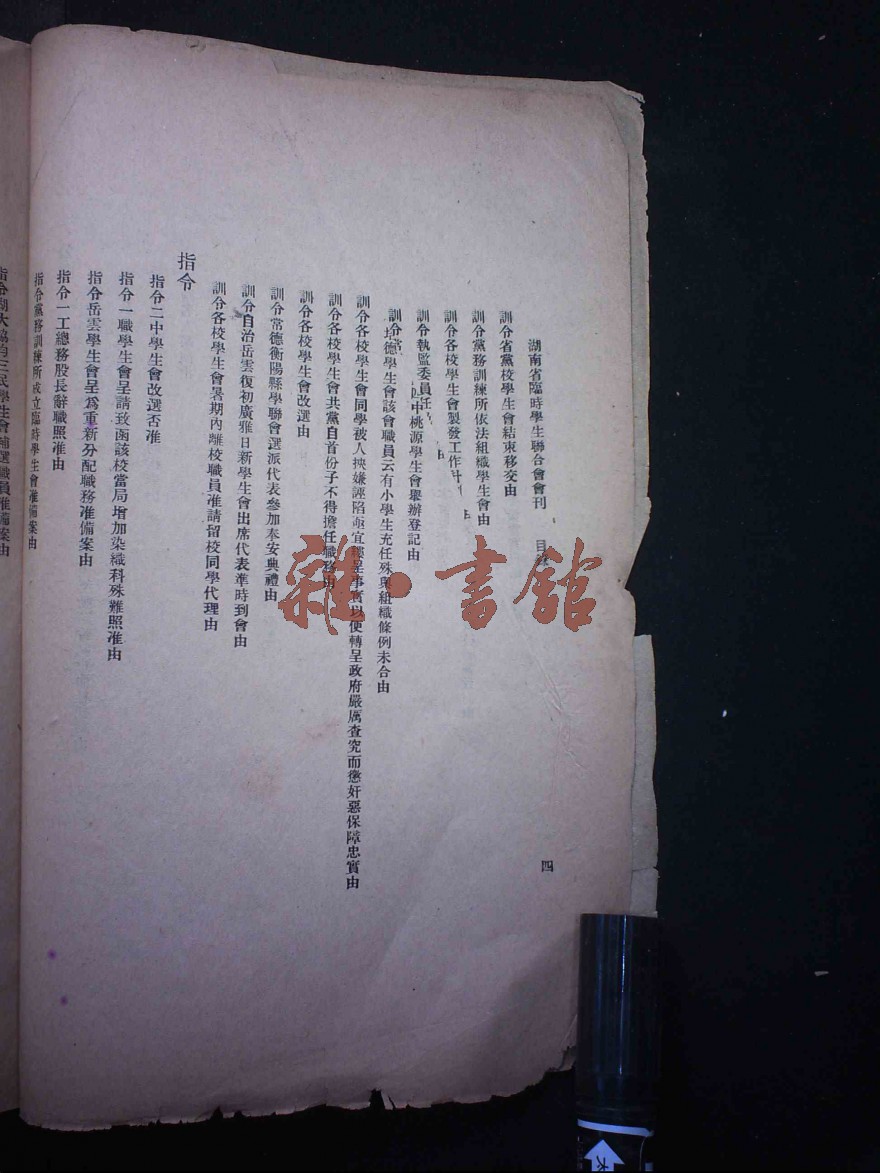 湖南省臨時學生聯合會會刊 目錄 四
訓令省黨校學生會結束移交由
訓令黨務訓練所依法組織學生會由
訓令各校學生會製發工作計
訓令執監委員任 由
訓令 中桃源學生會舉辦登記由
培德學生會該會職員云有小學生充任殊與組織條例未合由
訓令各校學生會同學被人挾嫌誣陷 宜 呈事實以便轉呈政府嚴厲查究而懲奸惡保障忠實由
訓令各校學生會共黨自首份子不得擔任職務由
訓令各校學生會改選由
訓令常德衡陽縣學聯會選派代表參加奉安典禮由
訓令自治岳雲復初廣雅日新學生會出席代表準時到會由
訓令各校學生會暑期內離校職員准請留校同學代理由
指令
指令二中學生會改選否准
指令一職學生會呈請致函該校當局增加染織科殊難照准由
指令岳雲學生會呈爲重新分配職務准備案由
指令一工總務股長辭職照准由
指令黨務訓練所成立臨時學生會准備案由
指令 大 三民學生會補選職員准備案由
雜·書館